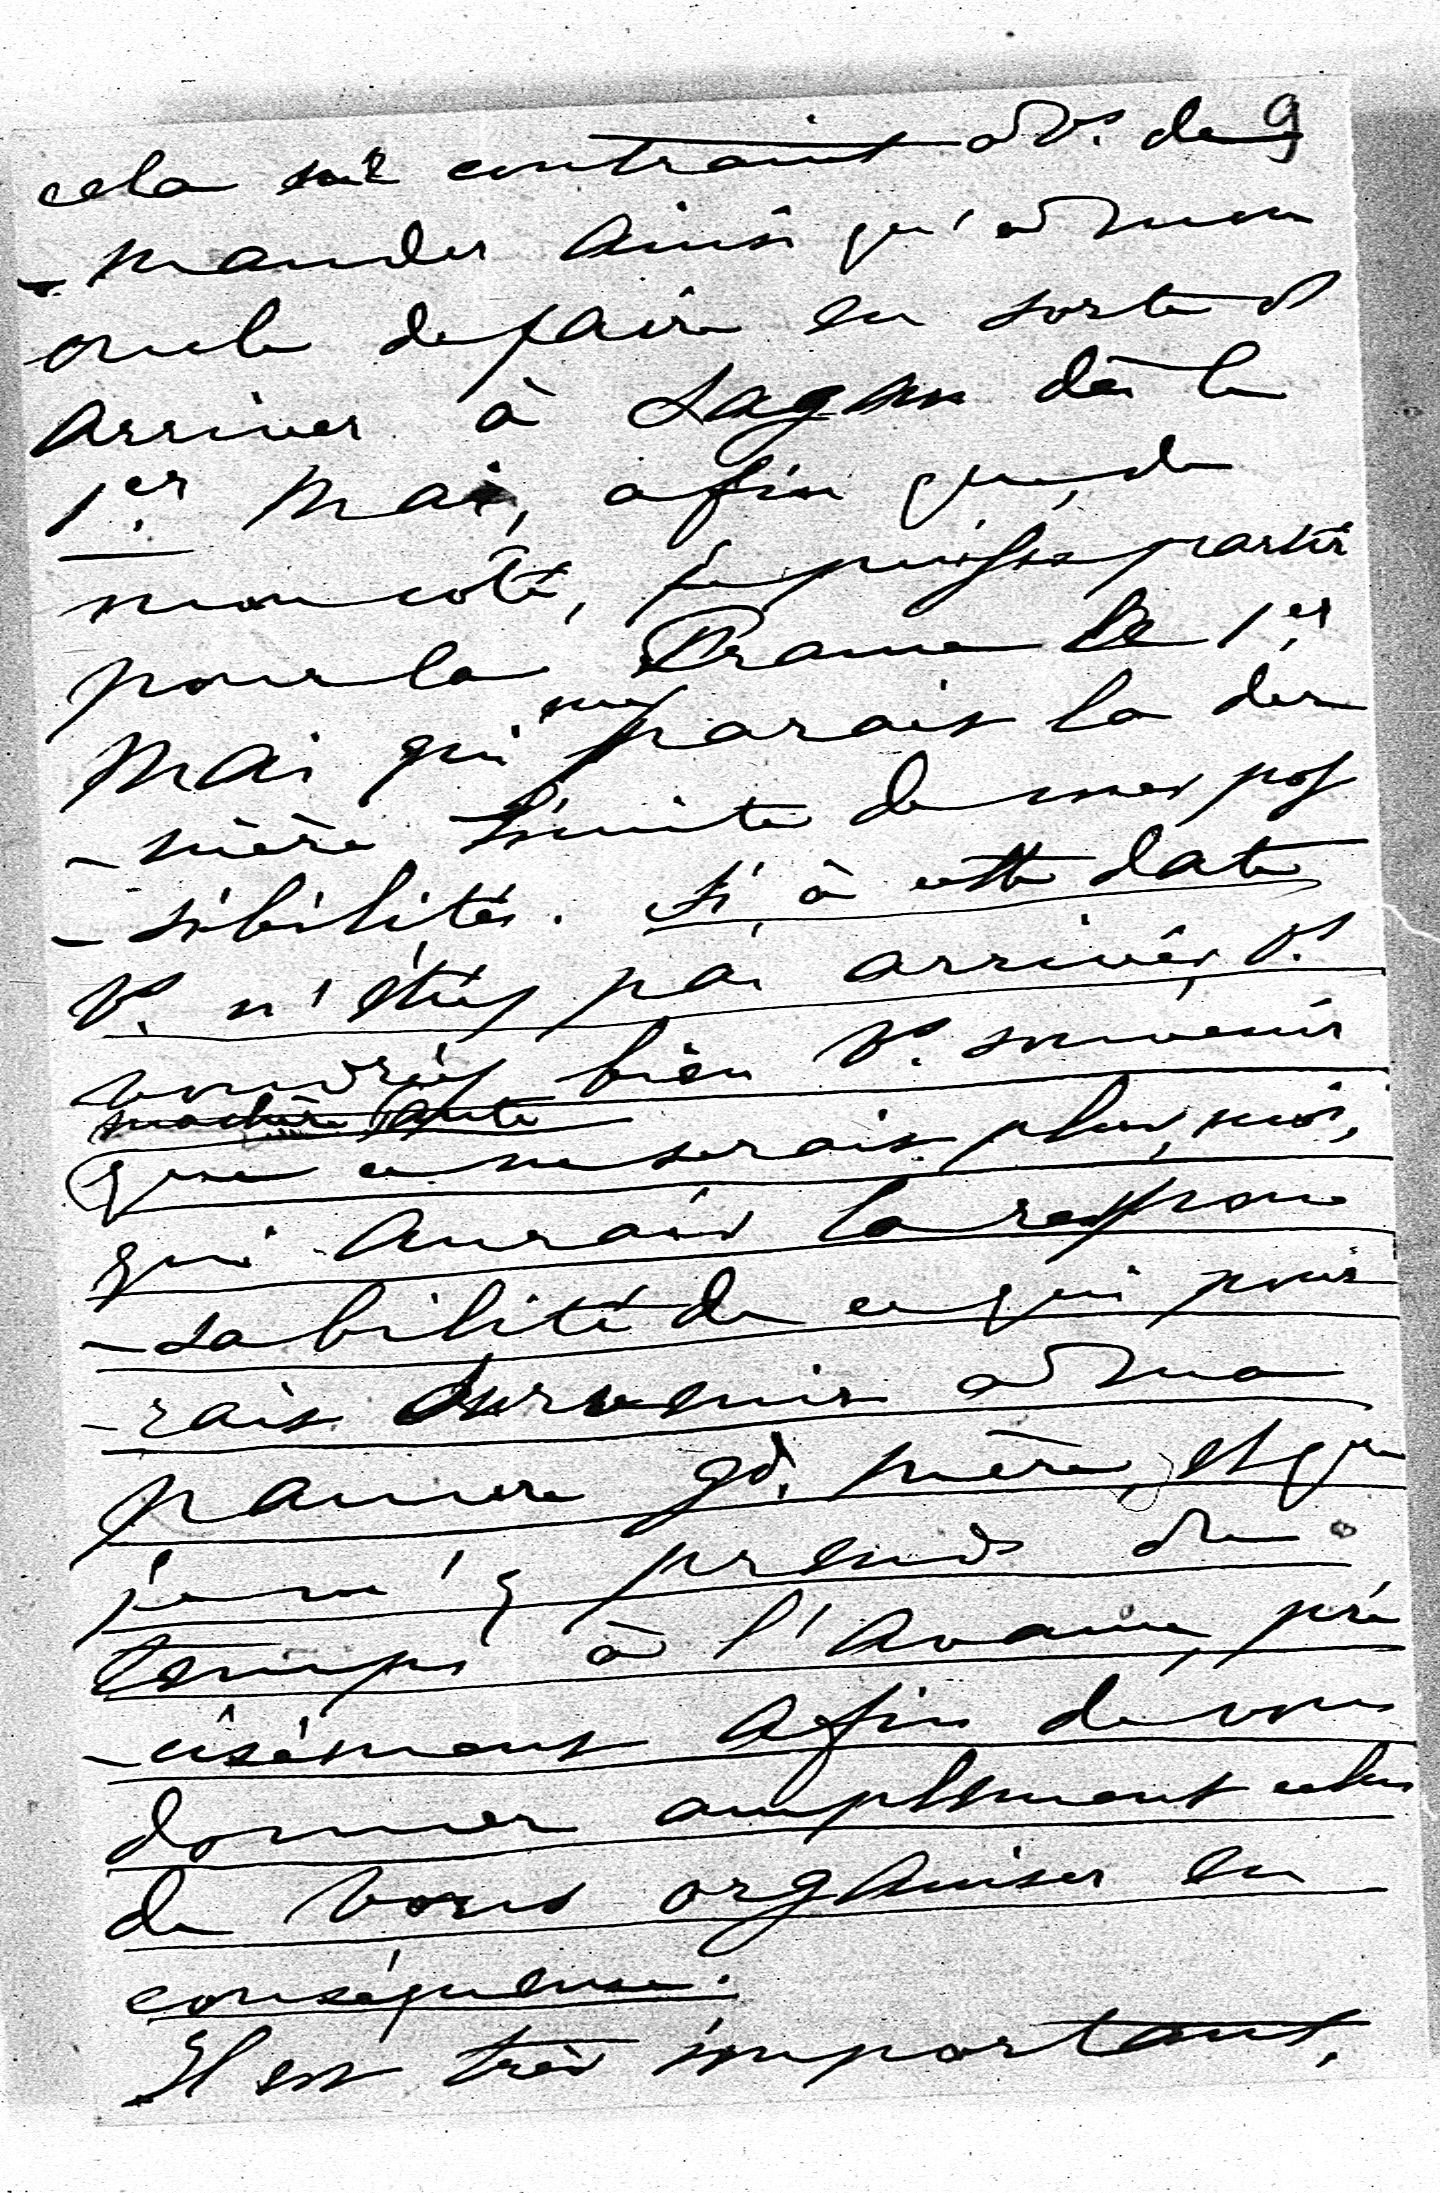 9
cela me contraint à Vs. de
-mander ainsi qu'à mon
oncle de faire en sorte d'
arriver à Sagan dès le
1er Mai, afin que, de
mon côté, je puisse partir
pour la France le 1er
Mai qui me parait la der
-nière limite de mes pos
-sibilités. Si, à cette date
Vs. n'étiez pas arrivés, Vs.
voudriez bien Vs. souvenir
ma chère tante
que ce ne serais plus, moi,
qui aurais la respon
-sabilité de ce qui pour
-rais survenir à ma
pauvre gd. mère, et que
je m'y prends de
temps à l'avance, pré
-cisément afin de vous
donner amplement celui
de vous organiser en
conséquence.
Il est très important,